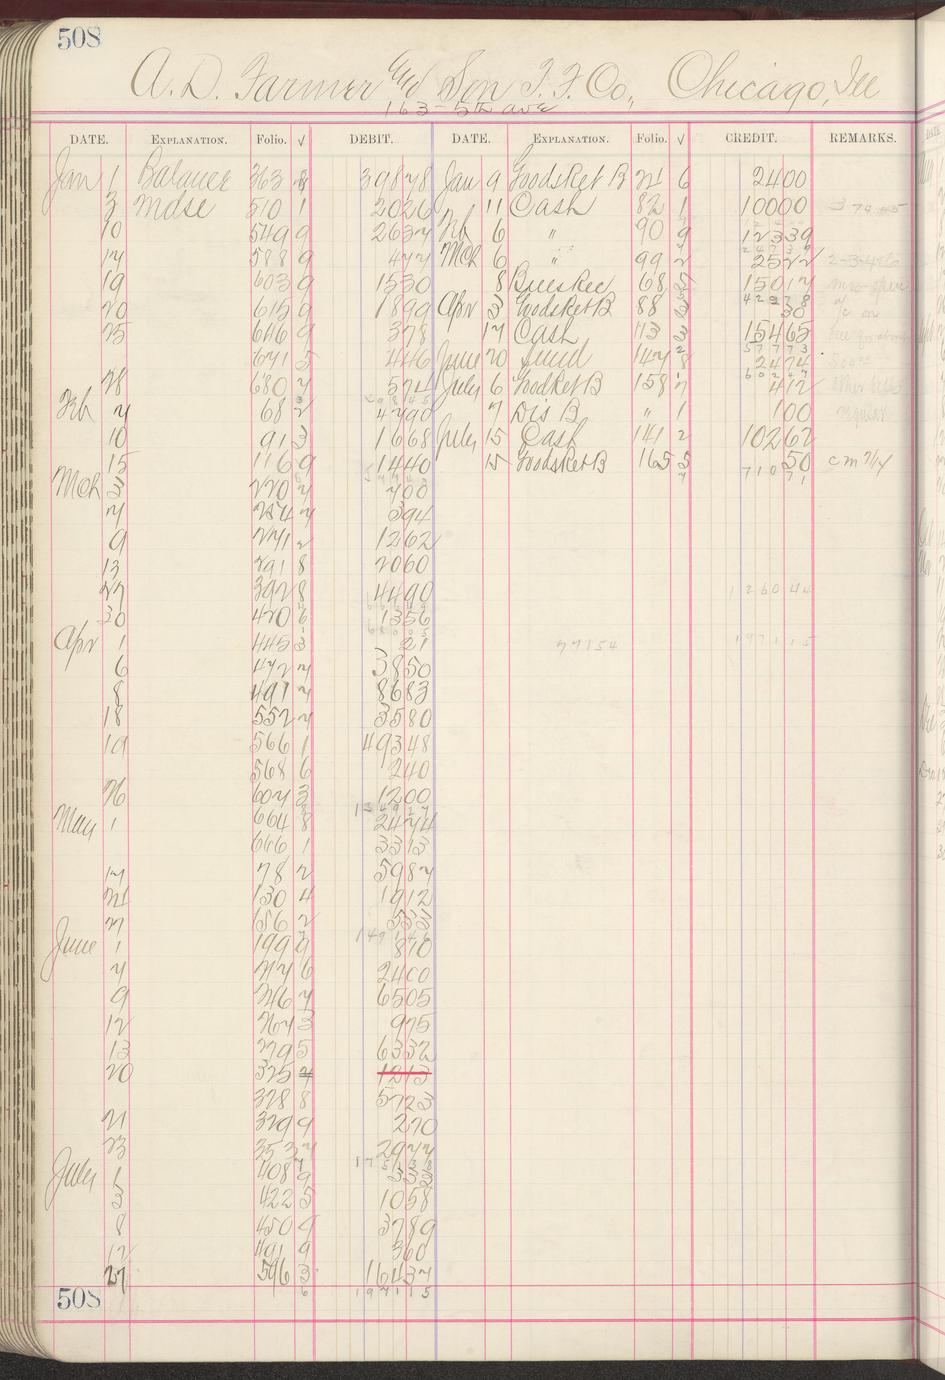 508
A. D. Farmer and Son T. F. Co., Chicago, Ill
163-5th ave
DATE. EXPLANATION. Folio. √ DEBIT. DATE. EXPLANATION. Folio. √ CREDIT. REMARKS.
Jan 1 Balance 363 8 39878 Jan 9 Goodsket B 21 6 2400
3 Mdse 510 1 2026 11 Cash 82 1 10000
10 549 9 2637 Feb 6 " 90 9 12339
17 588 9 477 Mch 6 " 99 2 2522
19 603 9 1530 8 68 15017
20 615 9 1899 Apr 3 Goodsket B 88 3 30
25 646 9 378 17 Cash 113 3 15465
671 5 446 June 20 147 8 2474
28 680 7 574 July 6 Goodket B 158 7 412
Feb 7 68 2 4790 7 Dis B " 1 100
10 91 3 1668 July 15 Cash 141 2 10267
15 116 9 1440 15 Goodsket B 165 5 50 cm 7/14
71071
Mch 3 220 7 700
7 394
9 271 2 1262
13 291 8 2060
27 392 8 4490 126044
30 420 6 1356
Apr 1 445 3 21 77154 197115
6 472 7 3850
8 491 7 8683
18 552 7 3580
19 566 1 49348
568 6 240
26 607 3 1200
May 1 664 8 2474
666 1 3313
17 78 2 5987
21 130 4 1912
27 156 2 533
June 1 199 9 810
7 217 6 2400
9 246 7 6505
12 267 3 975
13 279 5 6332
20 325 4 1213
328 8 5723
21 329 9 270
23 353 7 2977
July 1 408 9 333
3 422 5 1058
8 450 9 3789
12 491 9 360
27 596 3 16437
508 197115